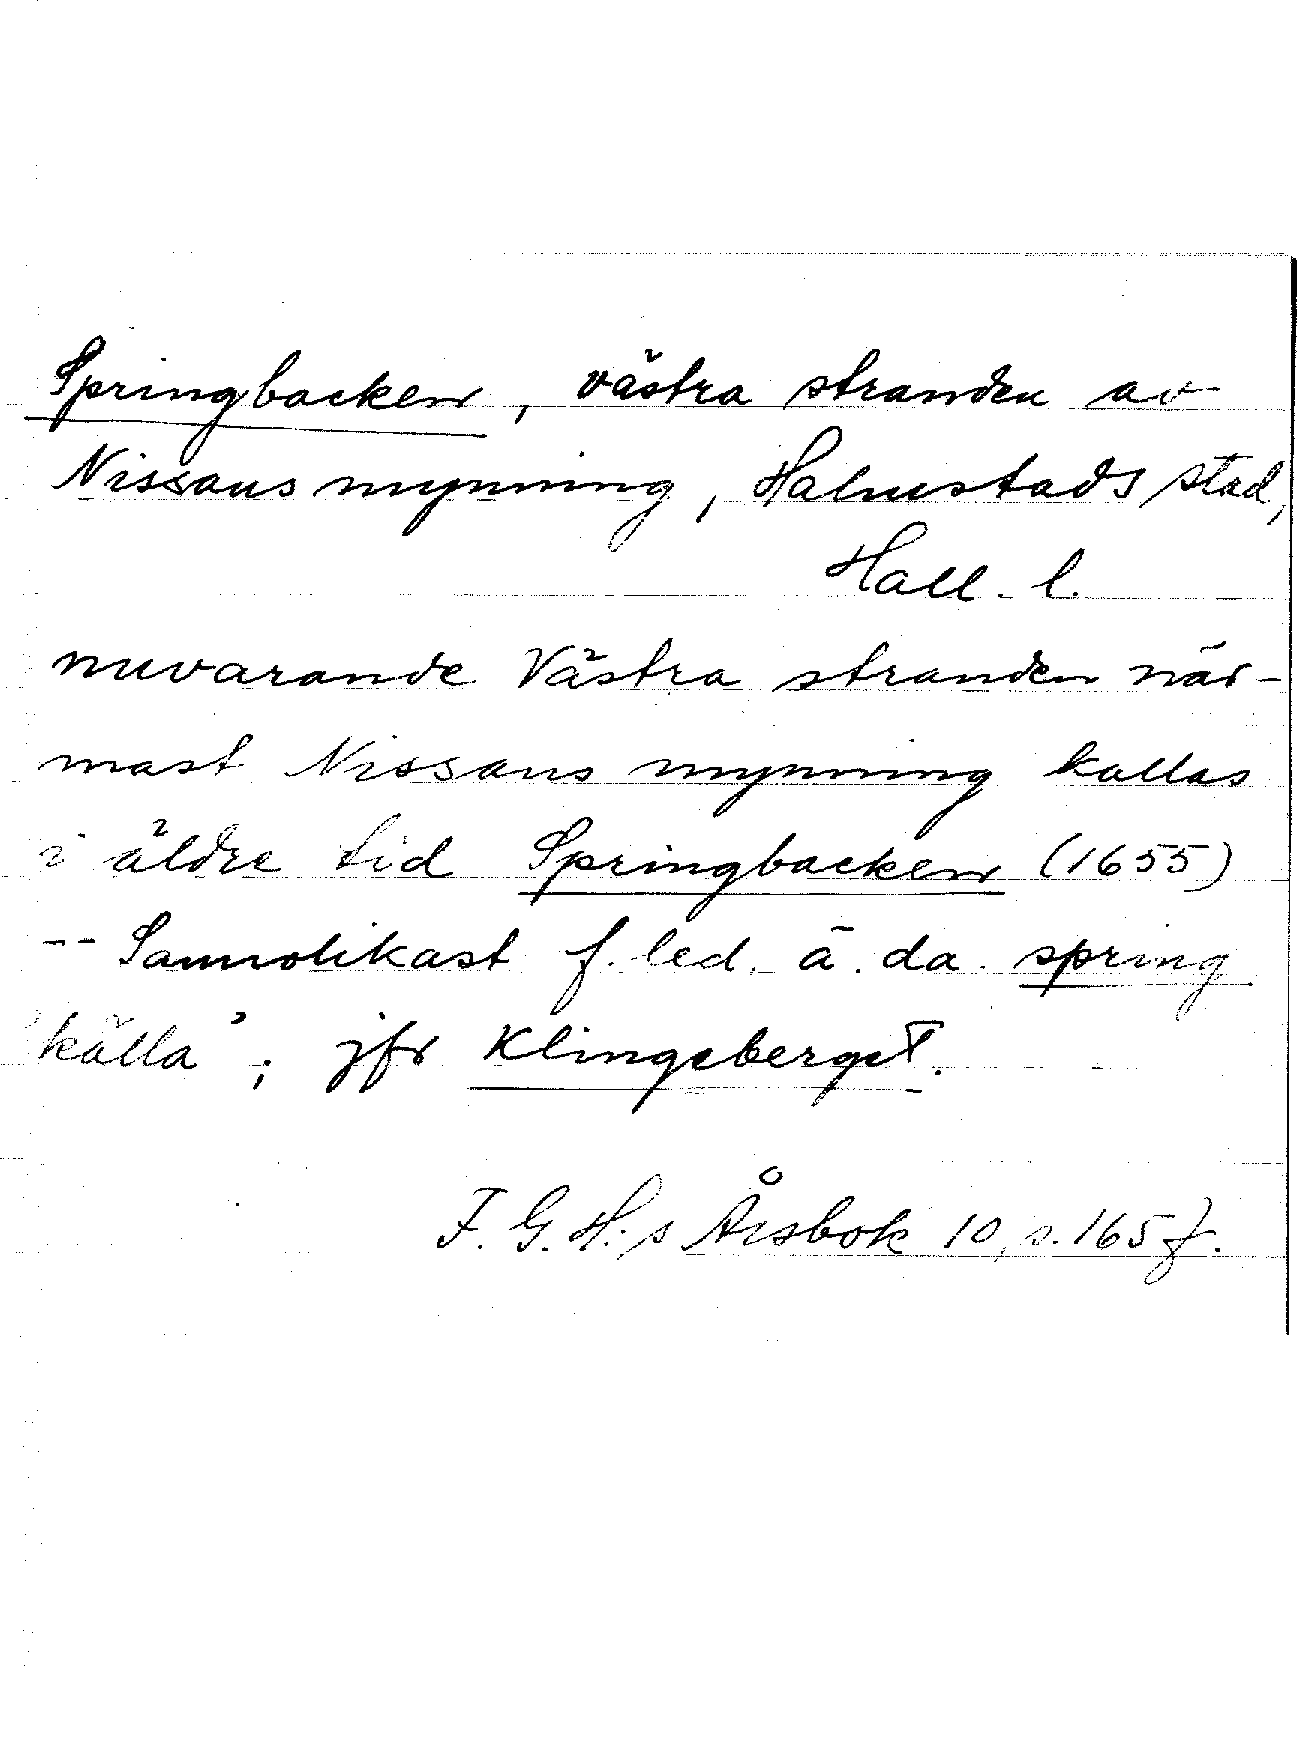 Springbacken, västra stranden av
Nissans mynning, Halmstads stad,
Hall. l.
nuvarande Västra stranden när-
mast Nissans mynning kallas
i äldre tid Springbacken (1655)
-- Sannolikast f. led. ä. da. spring
'källa'; jfr Klingeberget.
F. G. H:s Årsbok 10, s. 165 f.